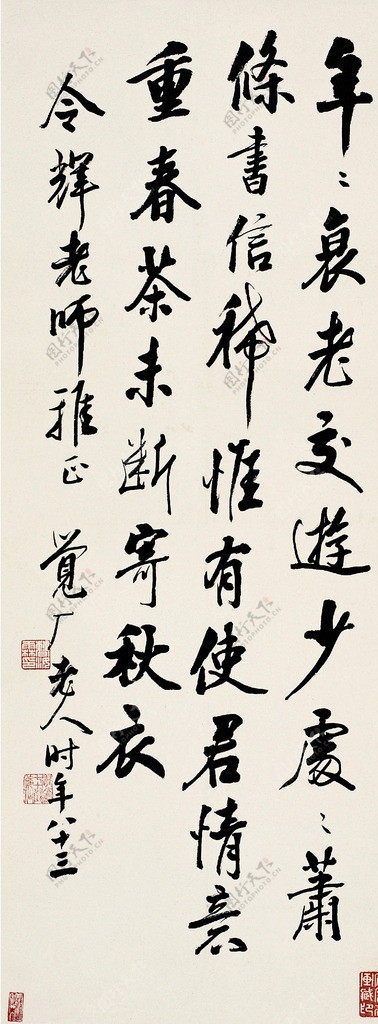 年〻衰老交遊少處〻蕭
條書信稀惟有使君情意
重春茶未断寄秋衣
令輝老師雅正
覺厂老人时年八十三